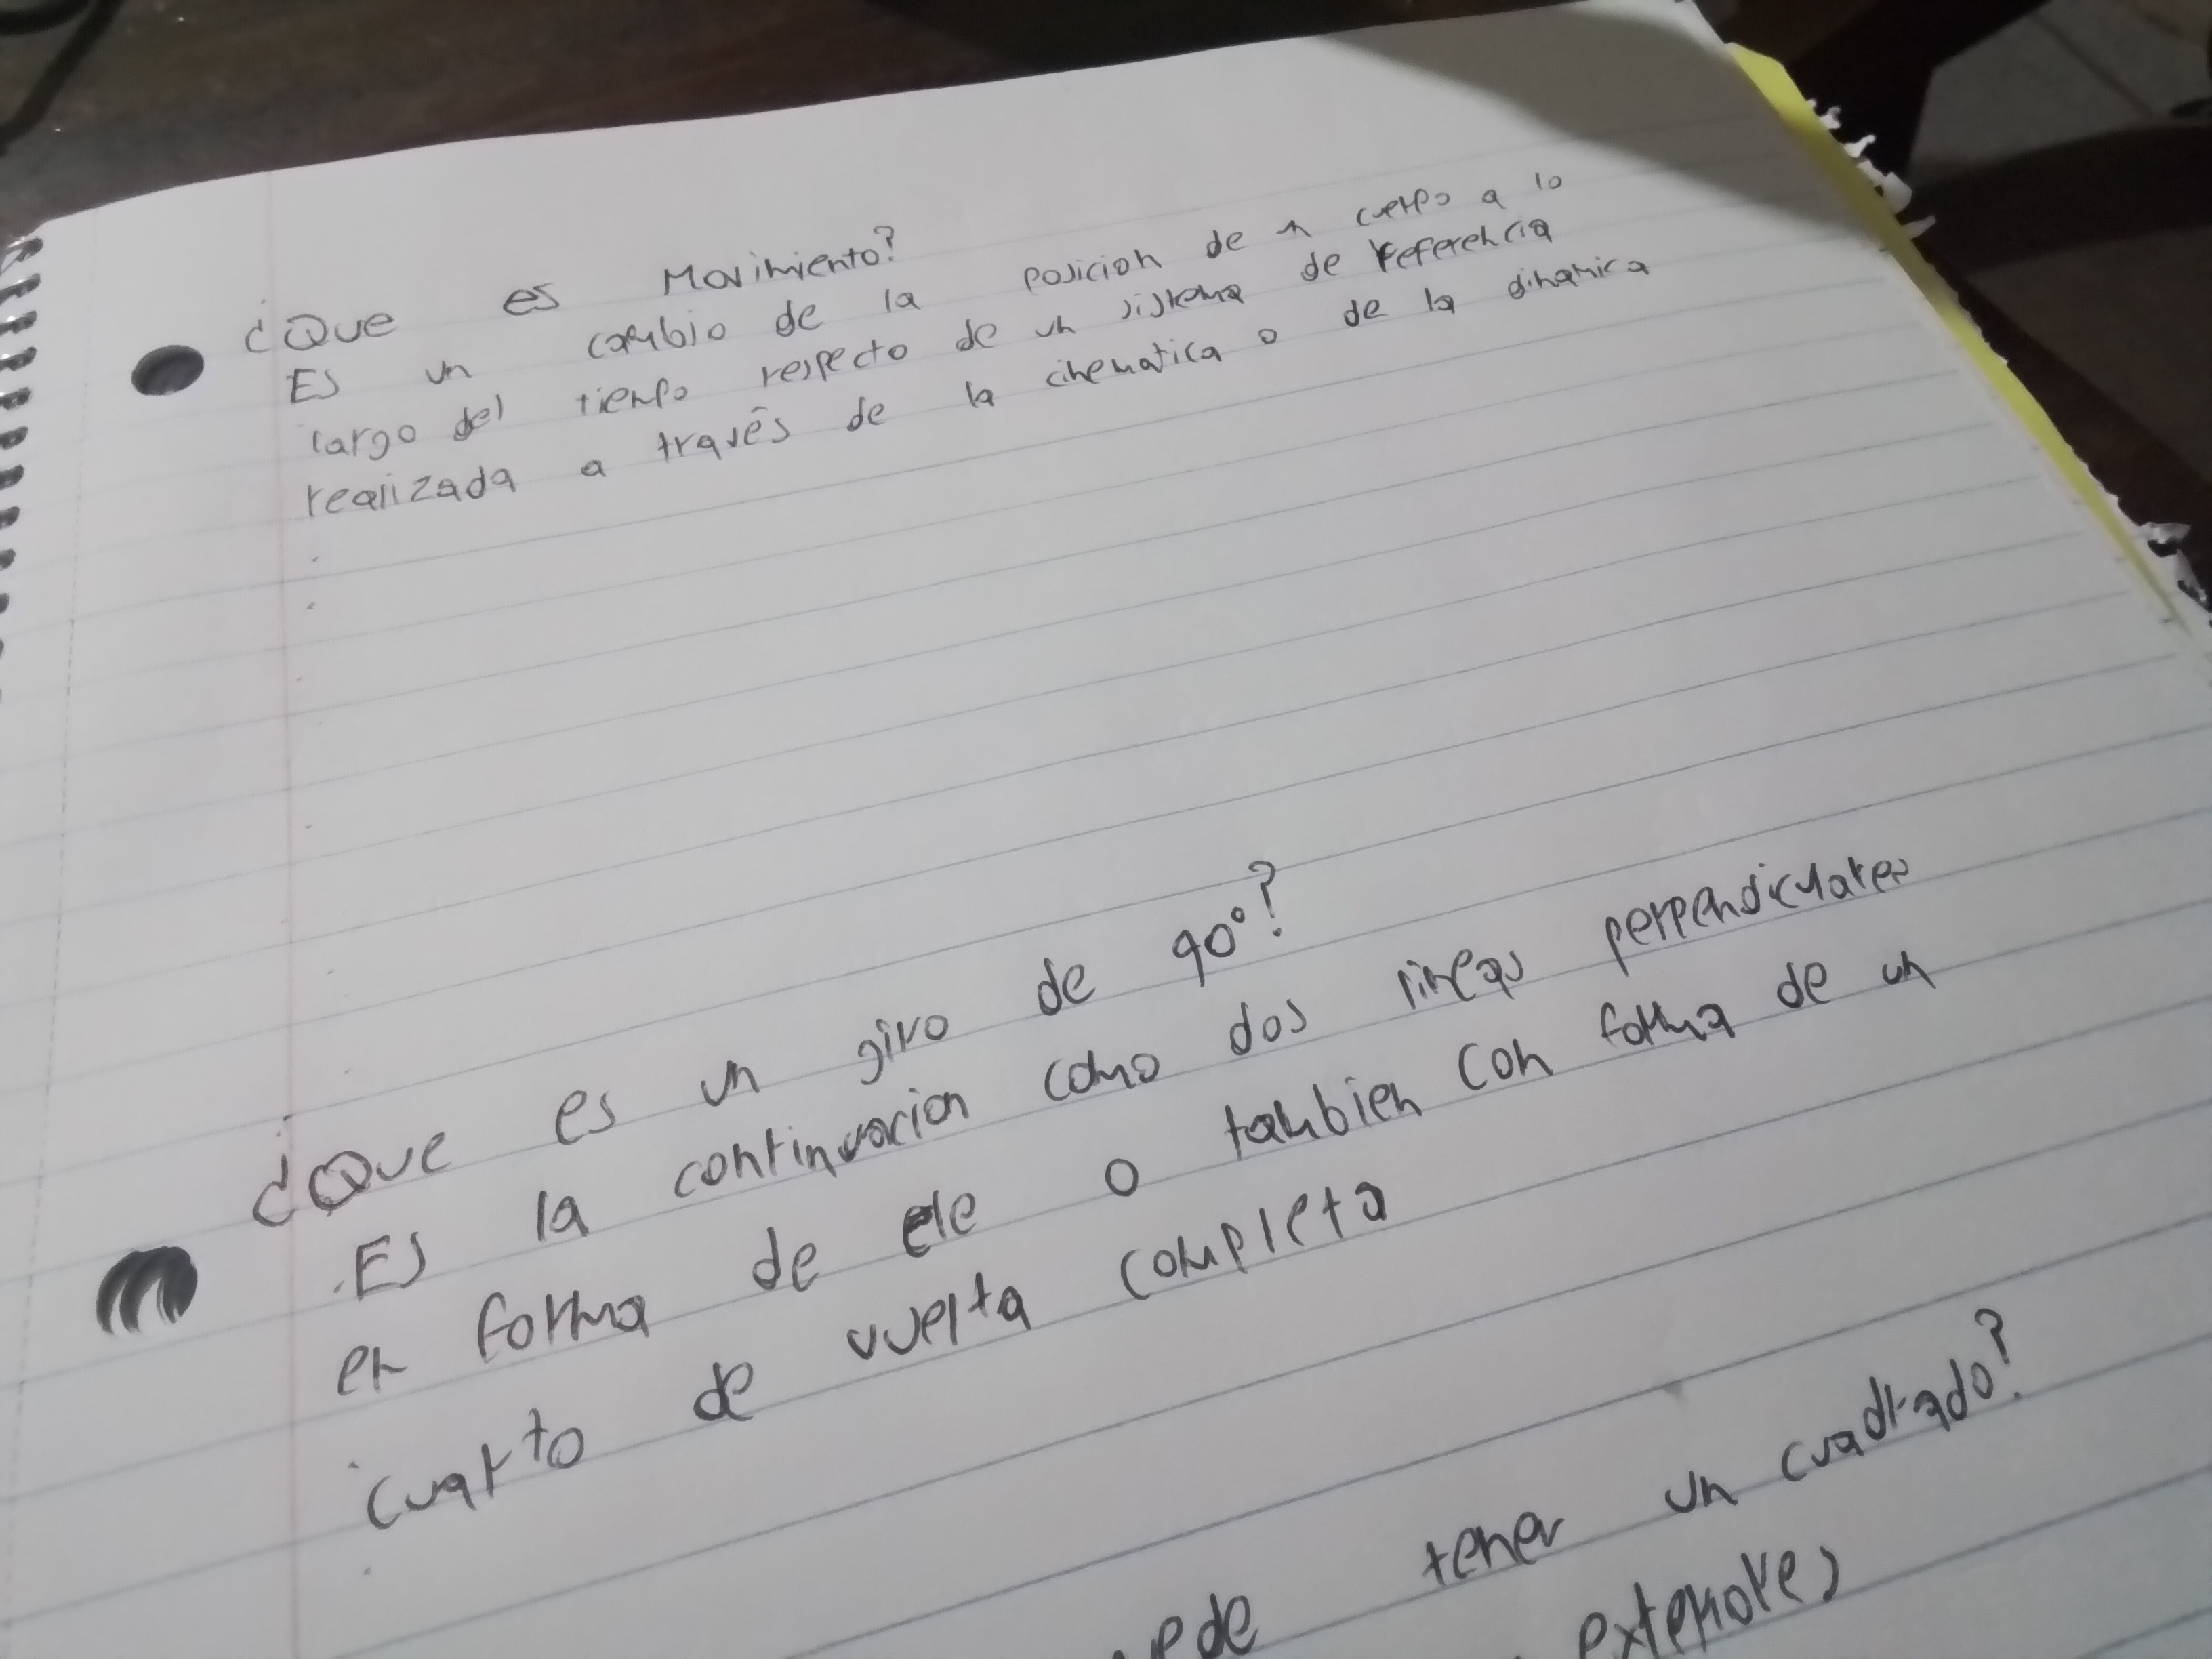 ¿Que es Movimiento?
Es un cambio de la posicion de n cuerpo a lo
largo del tiempo respecto de un sistema de referencia
realizada a través de la cinematica o de la dinamica
¿Que es un giro de 90°?
Es la continuacion como dos lineas perpendiculares
en forma de ele o tambien con forma de un
cuarto de vuelta completa
tener un cuadrado?
exteriores